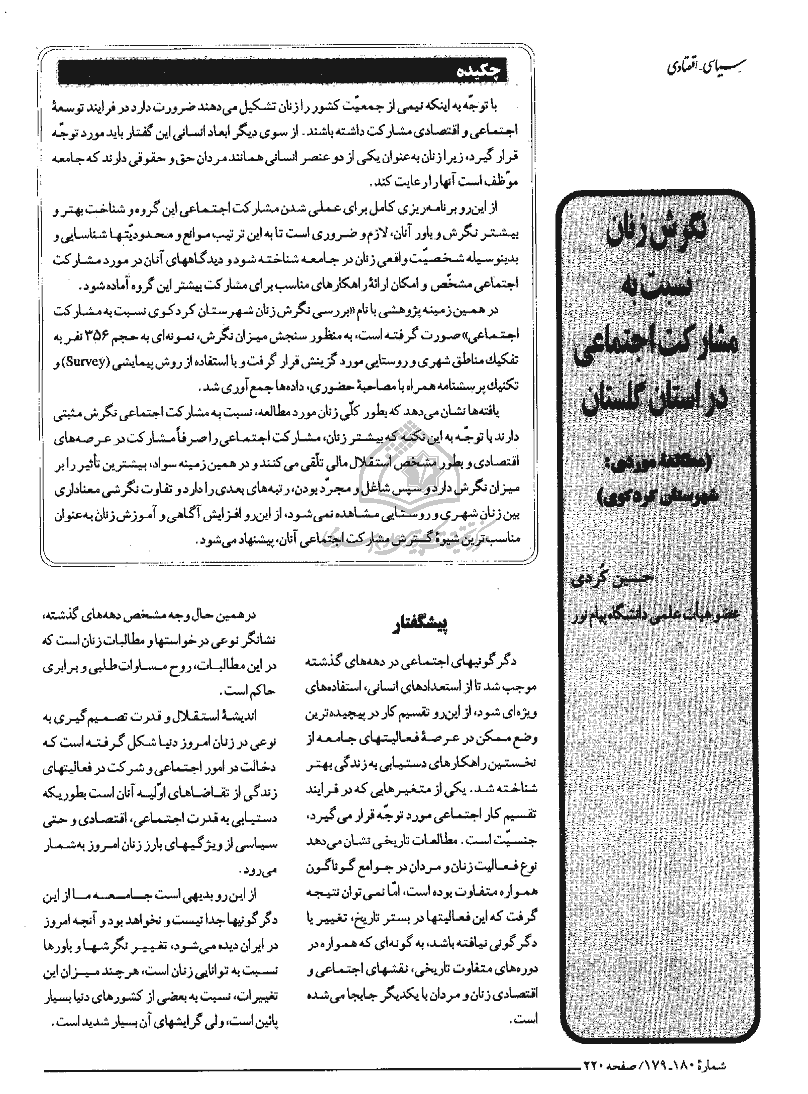 سیاسی - اقتصادی
نگرش زنان
نسبت به
مشارکت اجتماعی
در استان گلستان
(مطالعهٔ موردی:
شهرستان کردکوی)
حسین کُردی
عضو هیأت علمی دانشگاه پیام نور
چکیده
با توجّه به اینکه نیمی از جمعیّت کشور را زنان تشکیل می‌دهند ضرورت دارد در فرایند توسعهٔ
اجتماعی و اقتصادی مشارکت داشته باشند. از سوی دیگر ابعاد انسانی این گفتار باید مورد توجّه
قرار گیرد، زیرا زنان به‌عنوان یکی از دو عنصر انسانی همانند مردان حق و حقوقی دارند که جامعه
موّظف است آنها را رعایت کند.
از این‌رو برنامه‌ریزی کامل برای عملی شدن مشارکت اجتماعی این گروه و شناخت بهتر و
بیشتر نگرش و باور آنان، لازم و ضروری است تا به این ترتیب موانع و محدودیّتها شناسایی و
بدینوسیله شخصیّت واقعی زنان در جامعه شناخته شود و دیدگاههای آنان در مورد مشارکت
اجتماعی مشخّص و امکان ارائهٔ راهکارهای مناسب برای مشارکت بیشتر این گروه آماده شود.
در همین زمینه پژوهشی با نام «بررسی نگرش زنان شهرستان کردکوی نسبت به مشارکت
اجتماعی» صورت گرفته است، به منظور سنجش میزان نگرش، نمونه‌ای به حجم ۳۵۶ نفر به
تفکیك مناطق شهری و روستایی مورد گزینش قرار گرفت و با استفاده از روش پیمایشی (Survey) و
تکنیك پرسشنامه همراه با مصاحبهٔ حضوری، داده‌ها جمع‌آوری شد.
یافته‌ها نشان می‌دهد که بطور کلّی زنان مورد مطالعه، نسبت به مشارکت اجتماعی نگرش مثبتی
دارند با توجّه به این نکته که بیشتر زنان، مشارکت اجتماعی را صرفاً مشارکت در عرصه‌های
اقتصادی و بطور مشخص استقلال مالی تلّقی می‌کنند و در همین زمینه سواد، بیشترین تأثیر را بر
میزان نگرش دارد و سپس شاغل و مجرّد بودن، رتبه‌های بعدی را دارد و تفاوت نگرشی معناداری
بین زنان شهری و روستایی مشاهده نمی‌شود، از این‌رو افزایش آگاهی و آموزش زنان به‌عنوان
مناسب‌ترین شیوهٔ گسترش مشارکت اجتماعی آنان، پیشنهاد می‌شود.
پیشگفتار
دگرگونیهای اجتماعی در دهه‌های گذشته
موجب شد تا از استعدادهای انسانی، استفاده‌های
ویژه‌ای شود، از این‌رو تقسیم کار در پیچیده‌ترین
وضع ممکن در عرصهٔ فعالیتهای جامعه از
نخستین راهکارهای دستیابی به زندگی بهتر
شناخته شد. یکی از متغیرهایی که در فرایند
تقسیم کار اجتماعی مورد توجّه قرار می‌گیرد،
جنسیّت است. مطالعات تاریخی نشان می‌دهد
نوع فعالیت زنان و مردان در جوامع گوناگون
همواره متفاوت بوده است، امّا نمی‌توان نتیجه
گرفت که این فعالیتها در بستر تاریخ، تغییر یا
دگرگونی نیافته باشد، به گونه‌ای که همواره در
دوره‌های متفاوت تاریخی، نقشهای اجتماعی و
اقتصادی زنان و مردان با یکدیگر جابجا می‌شده
است.
در همین حال وجه مشخص دهه‌های گذشته،
نشانگر نوعی درخواستها و مطالبات زنان است که
در این مطالبات، روح مساوات طلبی و برابری
حاکم است.
اندیشهٔ استقلال و قدرت تصمیم‌گیری به
نوعی در زنان امروز دنیا شکل گرفته است که
دخالت در امور اجتماعی و شرکت در فعالیتهای
زندگی از تقاضاهای اوّلیه آنان است بطوریکه
دستیابی به قدرت اجتماعی، اقتصادی و حتی
سیاسی از ویژگیهای بارز زنان امروز به‌شمار
می‌رود.
از این رو بدیهی است جامعه ما از این
دگرگونیها جدا نیست و نخواهد بود و آنچه امروز
در ایران دیده می‌شود، تغییر نگرشها و باورها
نسبت به توانایی زنان است، هر چند میزان این
تغییرات، نسبت به بعضی از کشورهای دنیا بسیار
پائین است، ولی گرایشهای آن بسیار شدید است.
شمارهٔ ۱۸۰ـ۱۷۹/ صفحه ۲۲۰